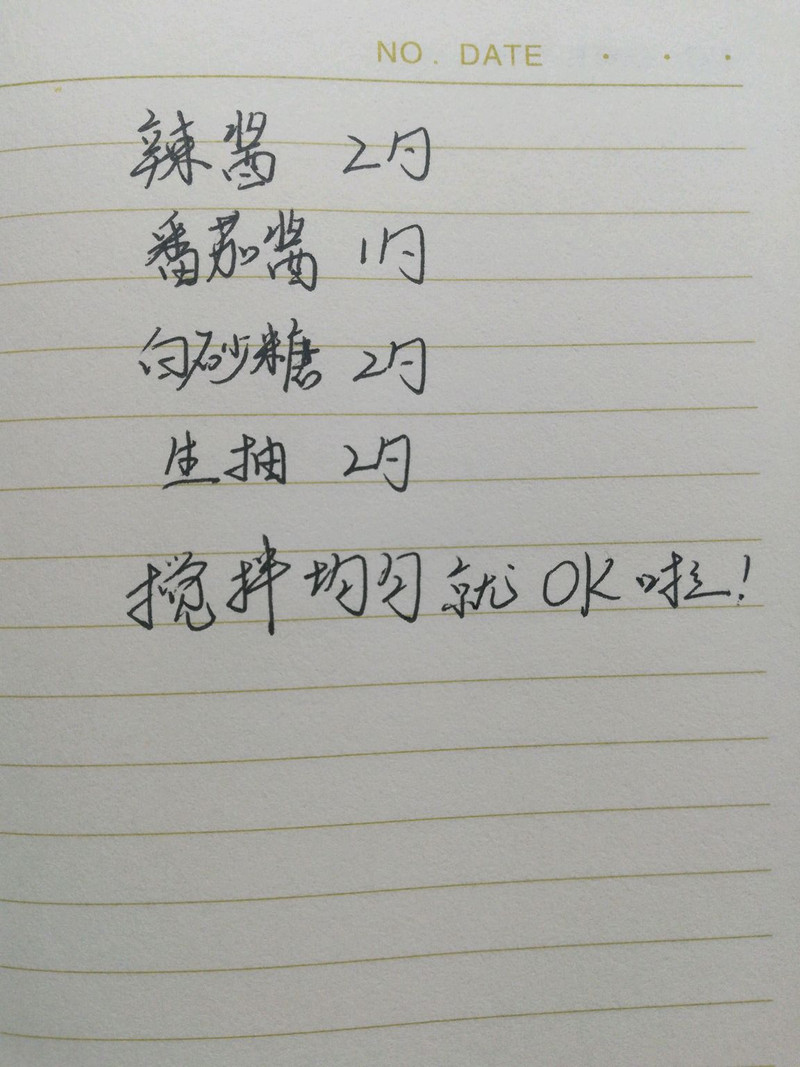 NO. DATE
辣酱 2勺
番茄酱 1勺
白砂糖 2勺
生抽 2勺
搅拌均匀就OK啦!